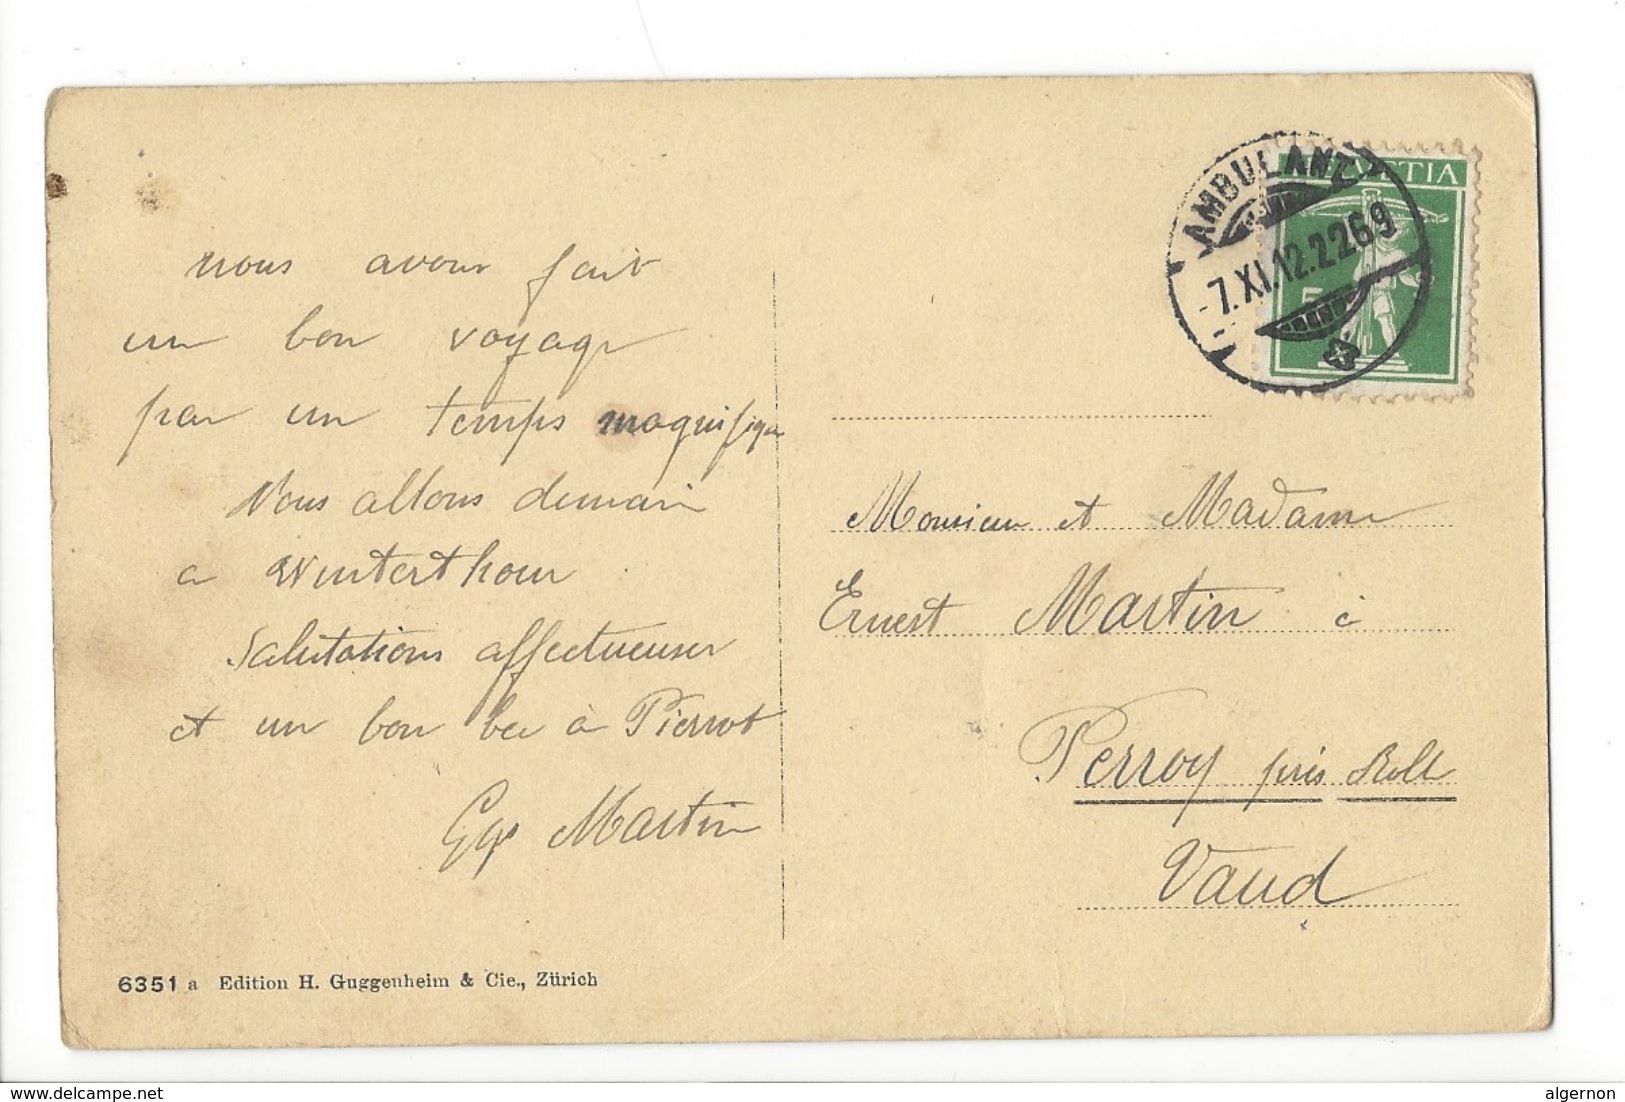 nous avons fait
un bon voyage
par un temps magnifique
Nous allons demain
a Winterthour
Salutations affectueuses
et un bon bec à Pierrot
Martin
6351 a Edition H. Guggenheim & Cie., Zürich
AMBULANT
-7.XI.12.2269
HELVETIA
5
Monsieur et Madame
Ernest Martin à
Perroy près Rolle
Vaud
www.delcampe.net
algernon